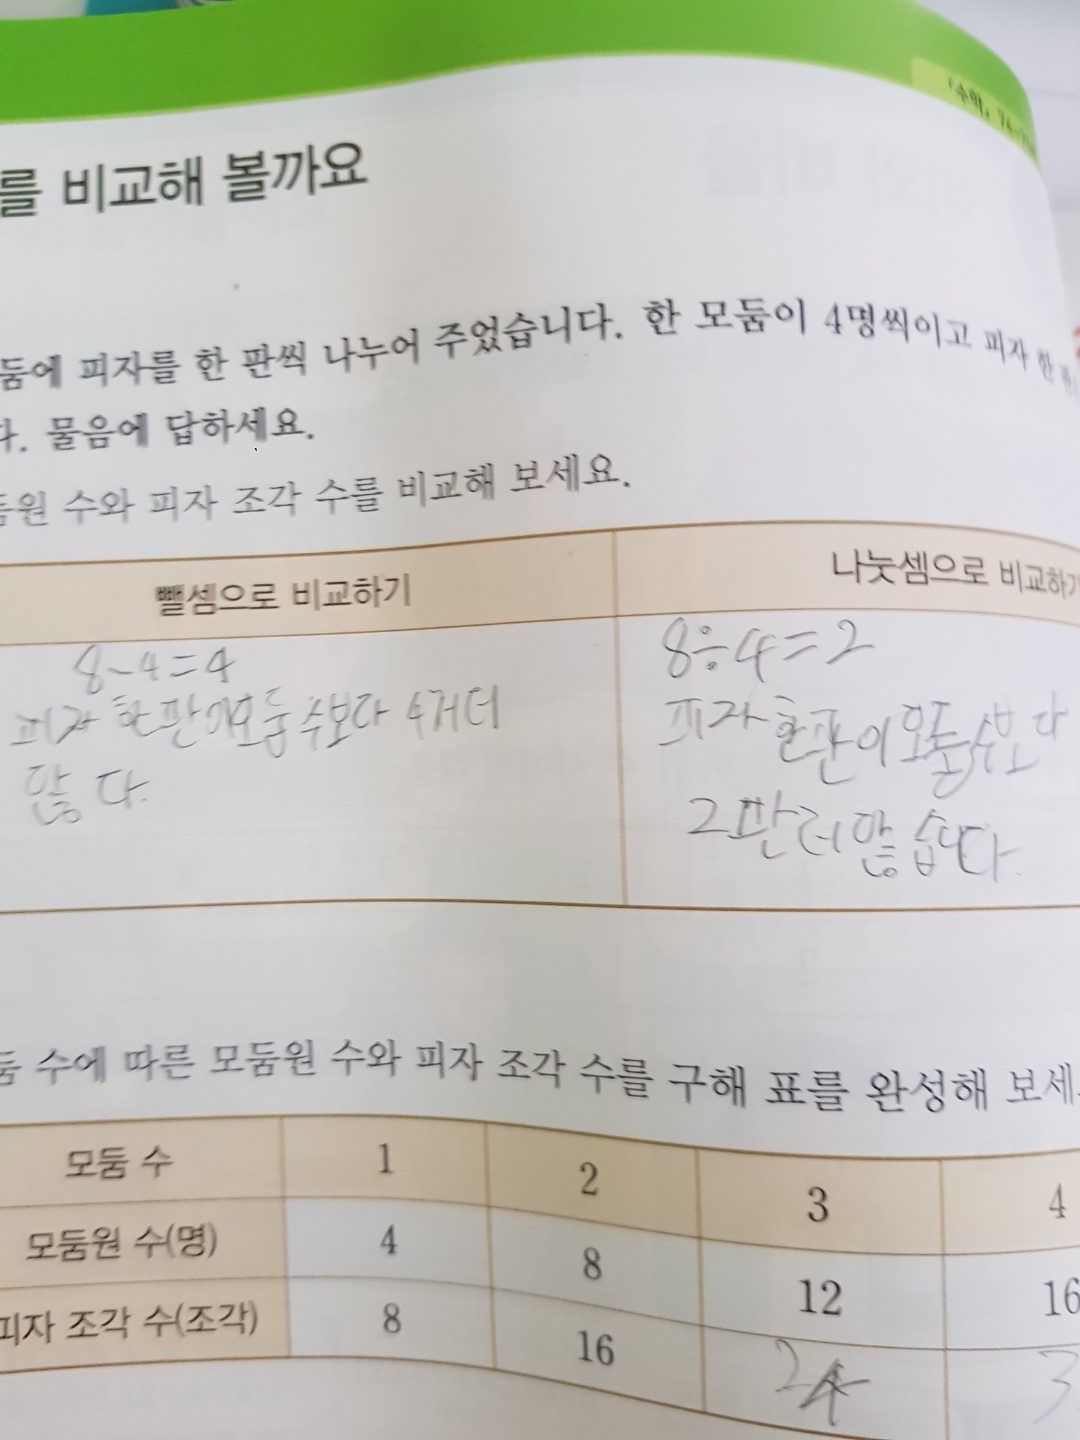 「수학」 74~
를 비교해 볼까요
둠에 피자를 한 판씩 나누어 주었습니다. 한 모둠이 4명씩이고 피자 한
다. 물음에 답하세요.
둠원 수와 피자 조각 수를 비교해 보세요.
뺄셈으로 비교하기
나눗셈으로 비교하기
8-4=4
피자 한판이 모둠수보다 4개더
많다.
8÷4=2
피자 한판이 모둠수보다
2판 더 많습니다.
둠 수에 따른 모둠원 수와 피자 조각 수를 구해 표를 완성해 보세
모둠 수 1 2 3 4
모둠원 수(명) 4 8 12 16
피자 조각 수(조각) 8 16 24 3